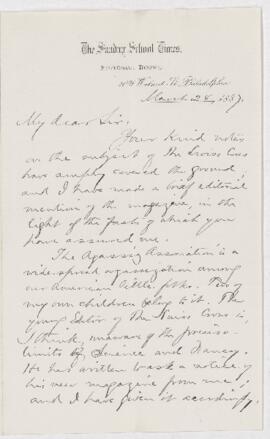 The Sunday School Times.
Editorial Rooms,
Walnut St. Philadelphia
March 28, 1887.
My dear Sir:
Your kind notes
on the subject of The Swiss Cross
have amply covered the ground,
and I have made a brief editorial
mention of the magazine, in the
light of the facts of which you
have assured me.
The Agassiz Association is a
wide-spread organization among
our American little folks. Two of
my own children belong to it. The
young Editor of The Swiss Cross is,
I think, unaware of the precise
limits of Science and Fancy.
He has written to ask a notice of
his new magazine from me;
and I have given it accordingly,